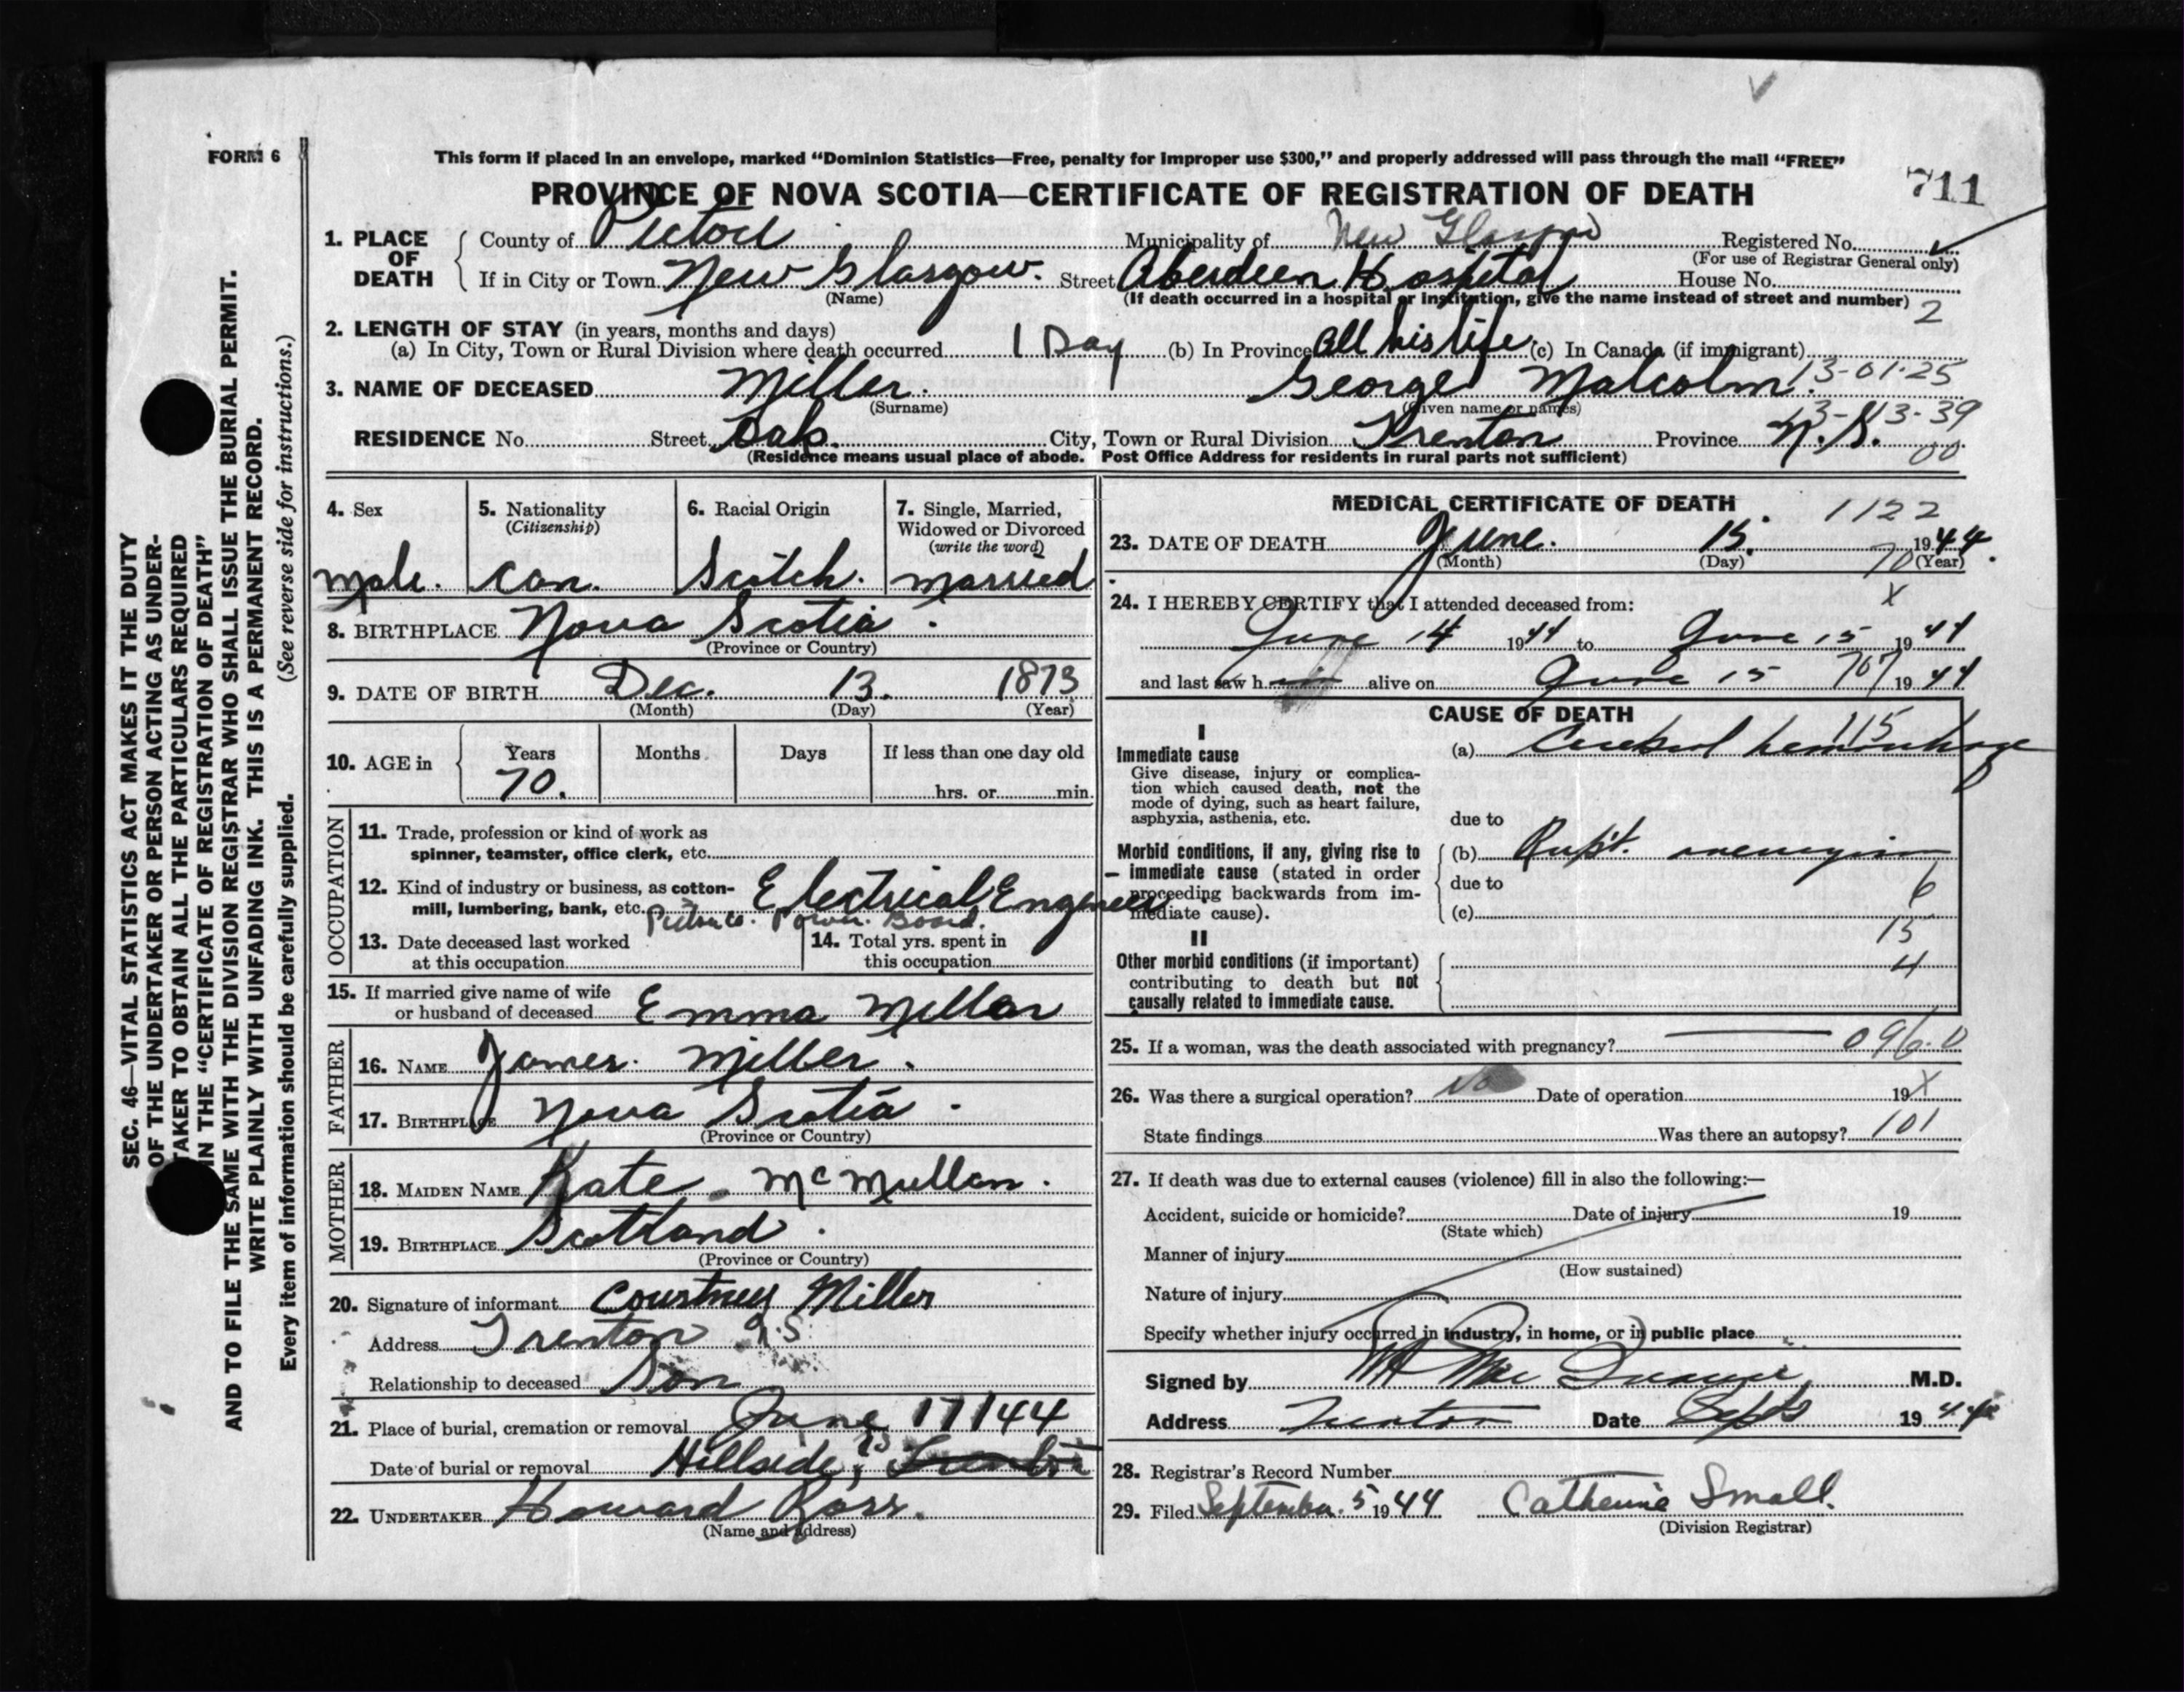 FORM 6
This form if placed in an envelope, marked “Dominion Statistics—Free, penalty for improper use $300,” and properly addressed will pass through the mail “FREE”
PROVINCE OF NOVA SCOTIA—CERTIFICATE OF REGISTRATION OF DEATH
711
1. PLACE OF DEATH
County of Pictou Municipality of New Glasgow Registered No.
(For use of Registrar General only)
If in City or Town New Glasgow. Street Aberdeen Hospital House No.
(Name) (If death occurred in a hospital or institution, give the name instead of street and number) 2
2. LENGTH OF STAY (in years, months and days)
(a) In City, Town or Rural Division where death occurred 1 Day (b) In Province All his life (c) In Canada (if immigrant)
3. NAME OF DECEASED Miller. George Malcolm. 13-01-25
(Surname) (Given name or names) 13-39
RESIDENCE No. Street Oak. City, Town or Rural Division Trenton Province N.S. 00
(Residence means usual place of abode. Post Office Address for residents in rural parts not sufficient)
4. Sex
male.
5. Nationality
(Citizenship)
Can.
6. Racial Origin
Scotch.
7. Single, Married,
Widowed or Divorced
(write the word)
married
8. BIRTHPLACE Nova Scotia.
(Province or Country)
9. DATE OF BIRTH Dec. 13. 1873
(Month) (Day) (Year)
10. AGE in Years Months Days If less than one day old
70. hrs. or min.
OCCUPATION
11. Trade, profession or kind of work as
spinner, teamster, office clerk, etc.
12. Kind of industry or business, as cotton-
mill, lumbering, bank, etc. Electrical Engineer
Pictou Co. Power Board.
13. Date deceased last worked
at this occupation
14. Total yrs. spent in
this occupation
15. If married give name of wife
or husband of deceased Emma Millar
FATHER
16. NAME James. Miller.
17. BIRTHPLACE Nova Scotia.
(Province or Country)
MOTHER
18. MAIDEN NAME Kate. McMullan.
19. BIRTHPLACE Scotland.
(Province or Country)
20. Signature of informant Courtney Miller
Address Trenton N.S
Relationship to deceased Son
21. Place of burial, cremation or removal June 17/44
Date of burial or removal Hillside, Trenton
22. UNDERTAKER Howard Ross.
(Name and address)
MEDICAL CERTIFICATE OF DEATH 1122
23. DATE OF DEATH June. 15. 1944
(Month) (Day) (Year)
70
24. I HEREBY CERTIFY that I attended deceased from: X
June 14 1944 to June 15 1944
and last saw him alive on June 15 1944
CAUSE OF DEATH
115
I
Immediate cause
Give disease, injury or complica-
tion which caused death, not the
mode of dying, such as heart failure,
asphyxia, asthenia, etc.
(a) Cerebral hemorrhage
due to
Morbid conditions, if any, giving rise to
immediate cause (stated in order
proceeding backwards from im-
mediate cause).
(b) Rupt. aneurysm
due to 6
(c)
15
II
Other morbid conditions (if important)
contributing to death but not
causally related to immediate cause.
4
25. If a woman, was the death associated with pregnancy? 096.0
26. Was there a surgical operation? No Date of operation 19 X
State findings Was there an autopsy? 101
27. If death was due to external causes (violence) fill in also the following:—
Accident, suicide or homicide? Date of injury 19
(State which)
Manner of injury
(How sustained)
Nature of injury
Specify whether injury occurred in industry, in home, or in public place
Signed by M.D.
Address Trenton Date Sept 5 1944
28. Registrar's Record Number
29. Filed September 5 1944 Catherine Small.
(Division Registrar)
SEC. 46—VITAL STATISTICS ACT MAKES IT THE DUTY
OF THE UNDERTAKER OR PERSON ACTING AS UNDER-
TAKER TO OBTAIN ALL THE PARTICULARS REQUIRED
IN THE “CERTIFICATE OF REGISTRATION OF DEATH”
AND TO FILE THE SAME WITH THE DIVISION REGISTRAR WHO SHALL ISSUE THE BURIAL PERMIT.
WRITE PLAINLY WITH UNFADING INK. THIS IS A PERMANENT RECORD.
Every item of information should be carefully supplied. (See reverse side for instructions.)